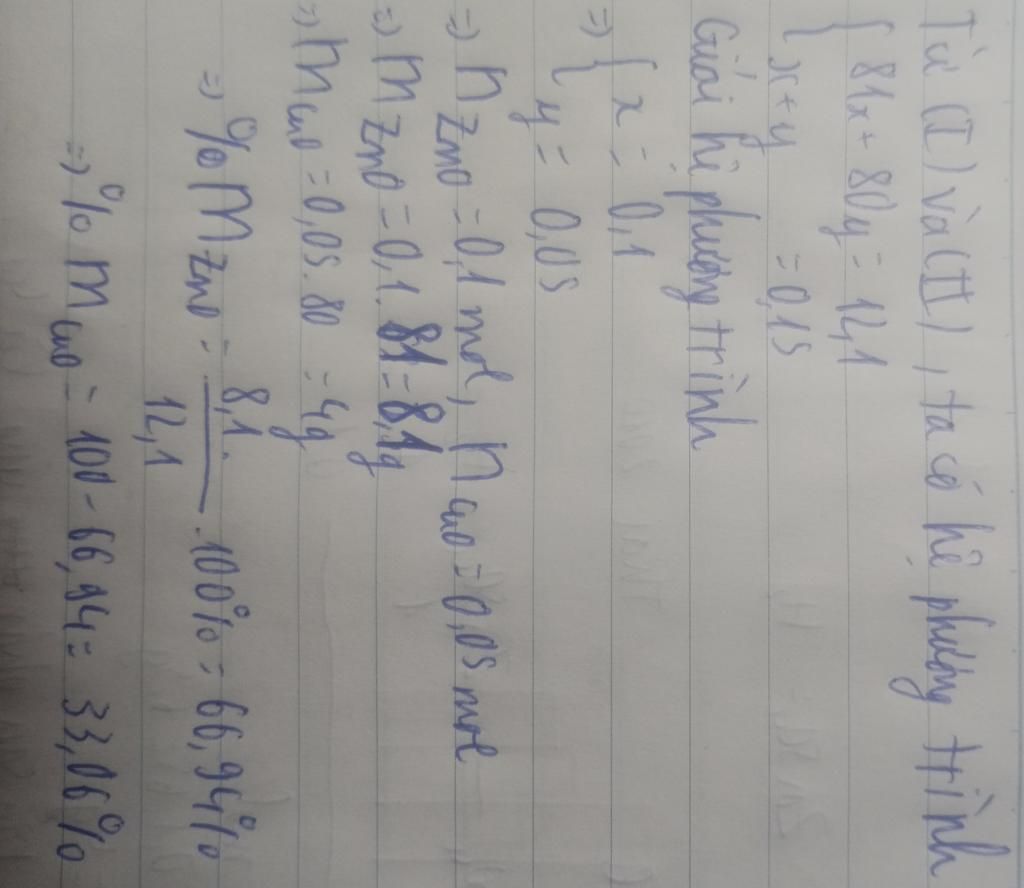 Từ (I) và (II), ta có hệ phương trình
{ 81x + 80y = 12,1
{ x + y = 0,15
Giải hệ phương trình
=> { x = 0,1
{ y = 0,05
=> n ZnO = 0,1 mol, n CuO = 0,05 mol
=> m ZnO = 0,1 . 81 = 8,1g
=> m CuO = 0,05 . 80 = 4g
=> % m ZnO = 8,1 / 12,1 . 100% = 66,94%
=> % m CuO = 100 - 66,94 = 33,06%